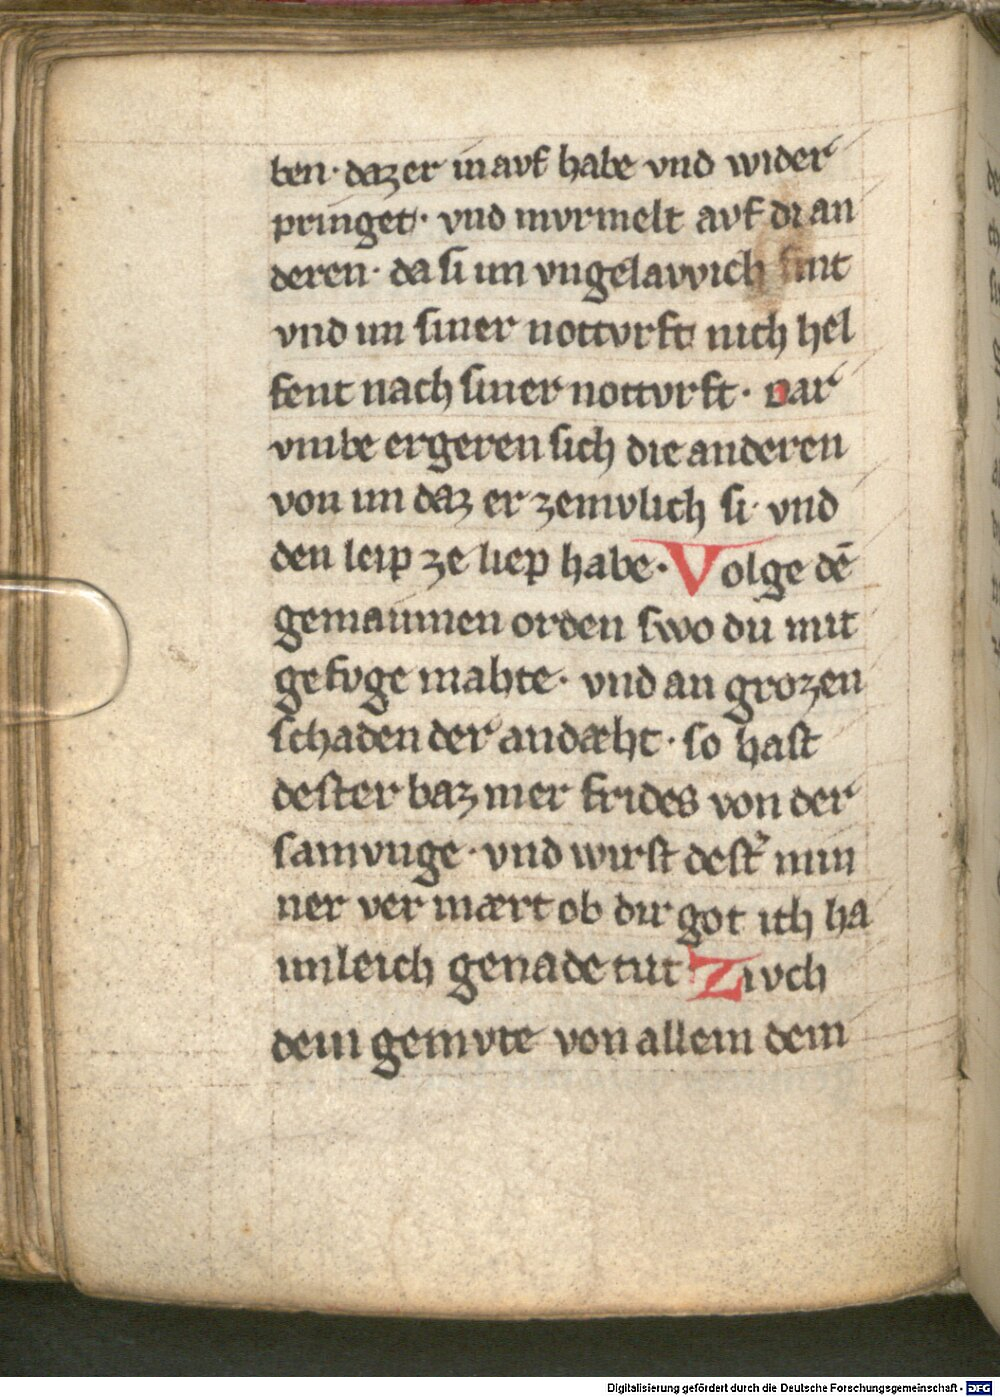 ben· daz er in avf habe vnd wider
pringet· vnd mvrmelt avf di an
deren· da si im vngelavvich sint
vnd im siner notturft nich hel
fent nach siner notturft· Dar
vmbe ergeren sich die anderen
von im daz er zemvlich si· vnd
den leip ze liep habe· Volge dē
gemainnen orden swo du mit
gefvge mahte· vnd an grozen
schaden der andæht· so hast
dester baz mer frides von der
samvnge· vnd wirst dest᾽ min
ner ver mært ob dir got ith ha
imleich genade tut Zivch
dein gemvte von allem dem
Digitalisierung gefördert durch die Deutsche Forschungsgemeinschaft - DFG